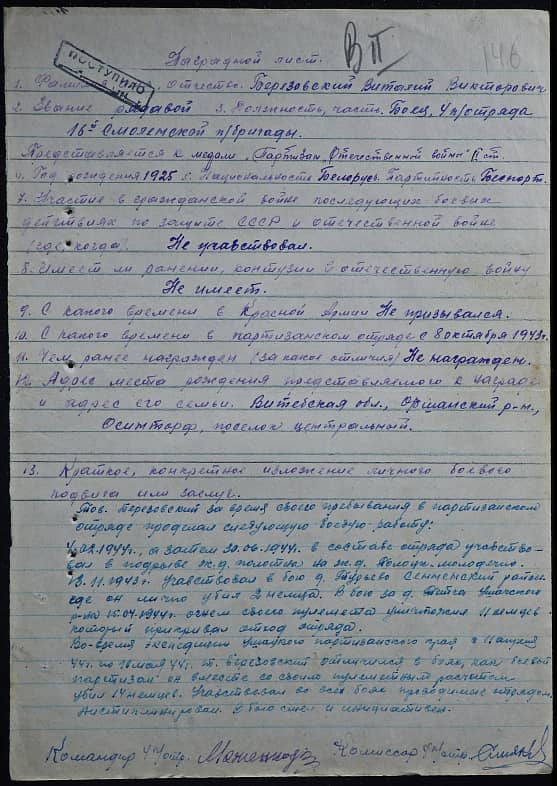 Наградной лист.
ВП
146
ПОСТУПИЛО
1. Фамилия, отчество. Березовский Виталий Викторович
2. Звание рядавой 3. Должность, часть. Боец, 4 п/отряда
16й Смоленской п/бригады.
Представляется к медали "Партизан Отечественной войны" II ст.
6. Год рождения 1925 г. Национальность Белорусь. Партийность Беспарт.
7. Участие в гражданской войне последующих боевых
действиях по защите СССР и отечественной войне
(где, когда). Не учавствовал.
8. Имеет ли ранении, контузии в отечественную войну
Не имеет.
9. С какого времени в Красной Армии Не призывался.
10. С какого времени в партизанском отряде с 8 октября 1943г.
11. Чем ранее награжден (за какие отличия) Не награжден.
12. Адрес места рождения представляемого к награде
и адрес его семьи. Витебская обл., Оршанский р-н,
Осинторф, поселок центральный.
13. Краткое, конкретное изложение личного боевого
подвига или заслуг.
Тов. Березовский за время своего пребывания в партизанском
отряде проделал следующую боевую работу:
02.1944г., а затем 20.06.1944г. в составе отряда учавство-
вал в подрыве ж.д. полотна на ж.д. Полоцк-молодечно.
12.11.1943г. Учавствовал в бою д. Турьево Сенненский район
где он лично убил 2 немца. В бою за д. Ушачского
р-на 15.04.1944г. огнем своего пулемета уничтожил 11 немцев
который прикривал отход отряда.
Во время экспедиции Ушацкого партизанского края с 11 апреля
44г. по мая 44г. т. Березовский отличился в боях, как боевой
партизан он вместе со своим пулеметным расчетом
убил 14 немцев. Учавствовал во всех боях проводимых отрядом.
Дисциплинирован. В бою смел и инициативен.
Командир 4 п/отр. Комиссар 4 п/отр.